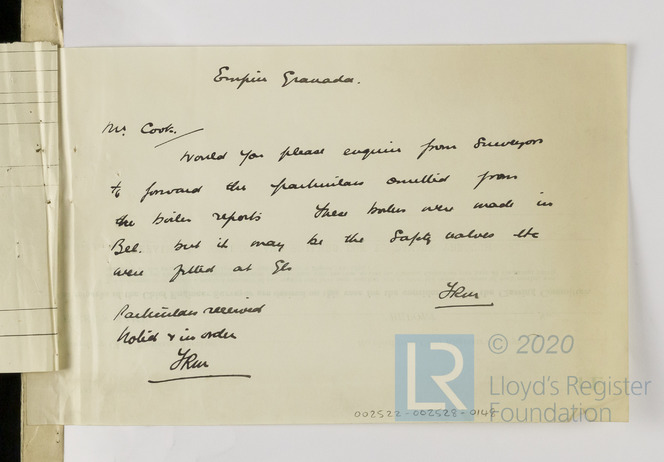 Empire Granada.
Mr. Cook.
Would you please enquire from Surveyors
to forward the particulars omitted from
the boiler reports These boilers were made in
Bel. but it may be the Safety valves etc
were fitted at Gls
Particulars received
Noted & in order
LR
© 2020
Lloyd's Register
Foundation
002522-002528-0148